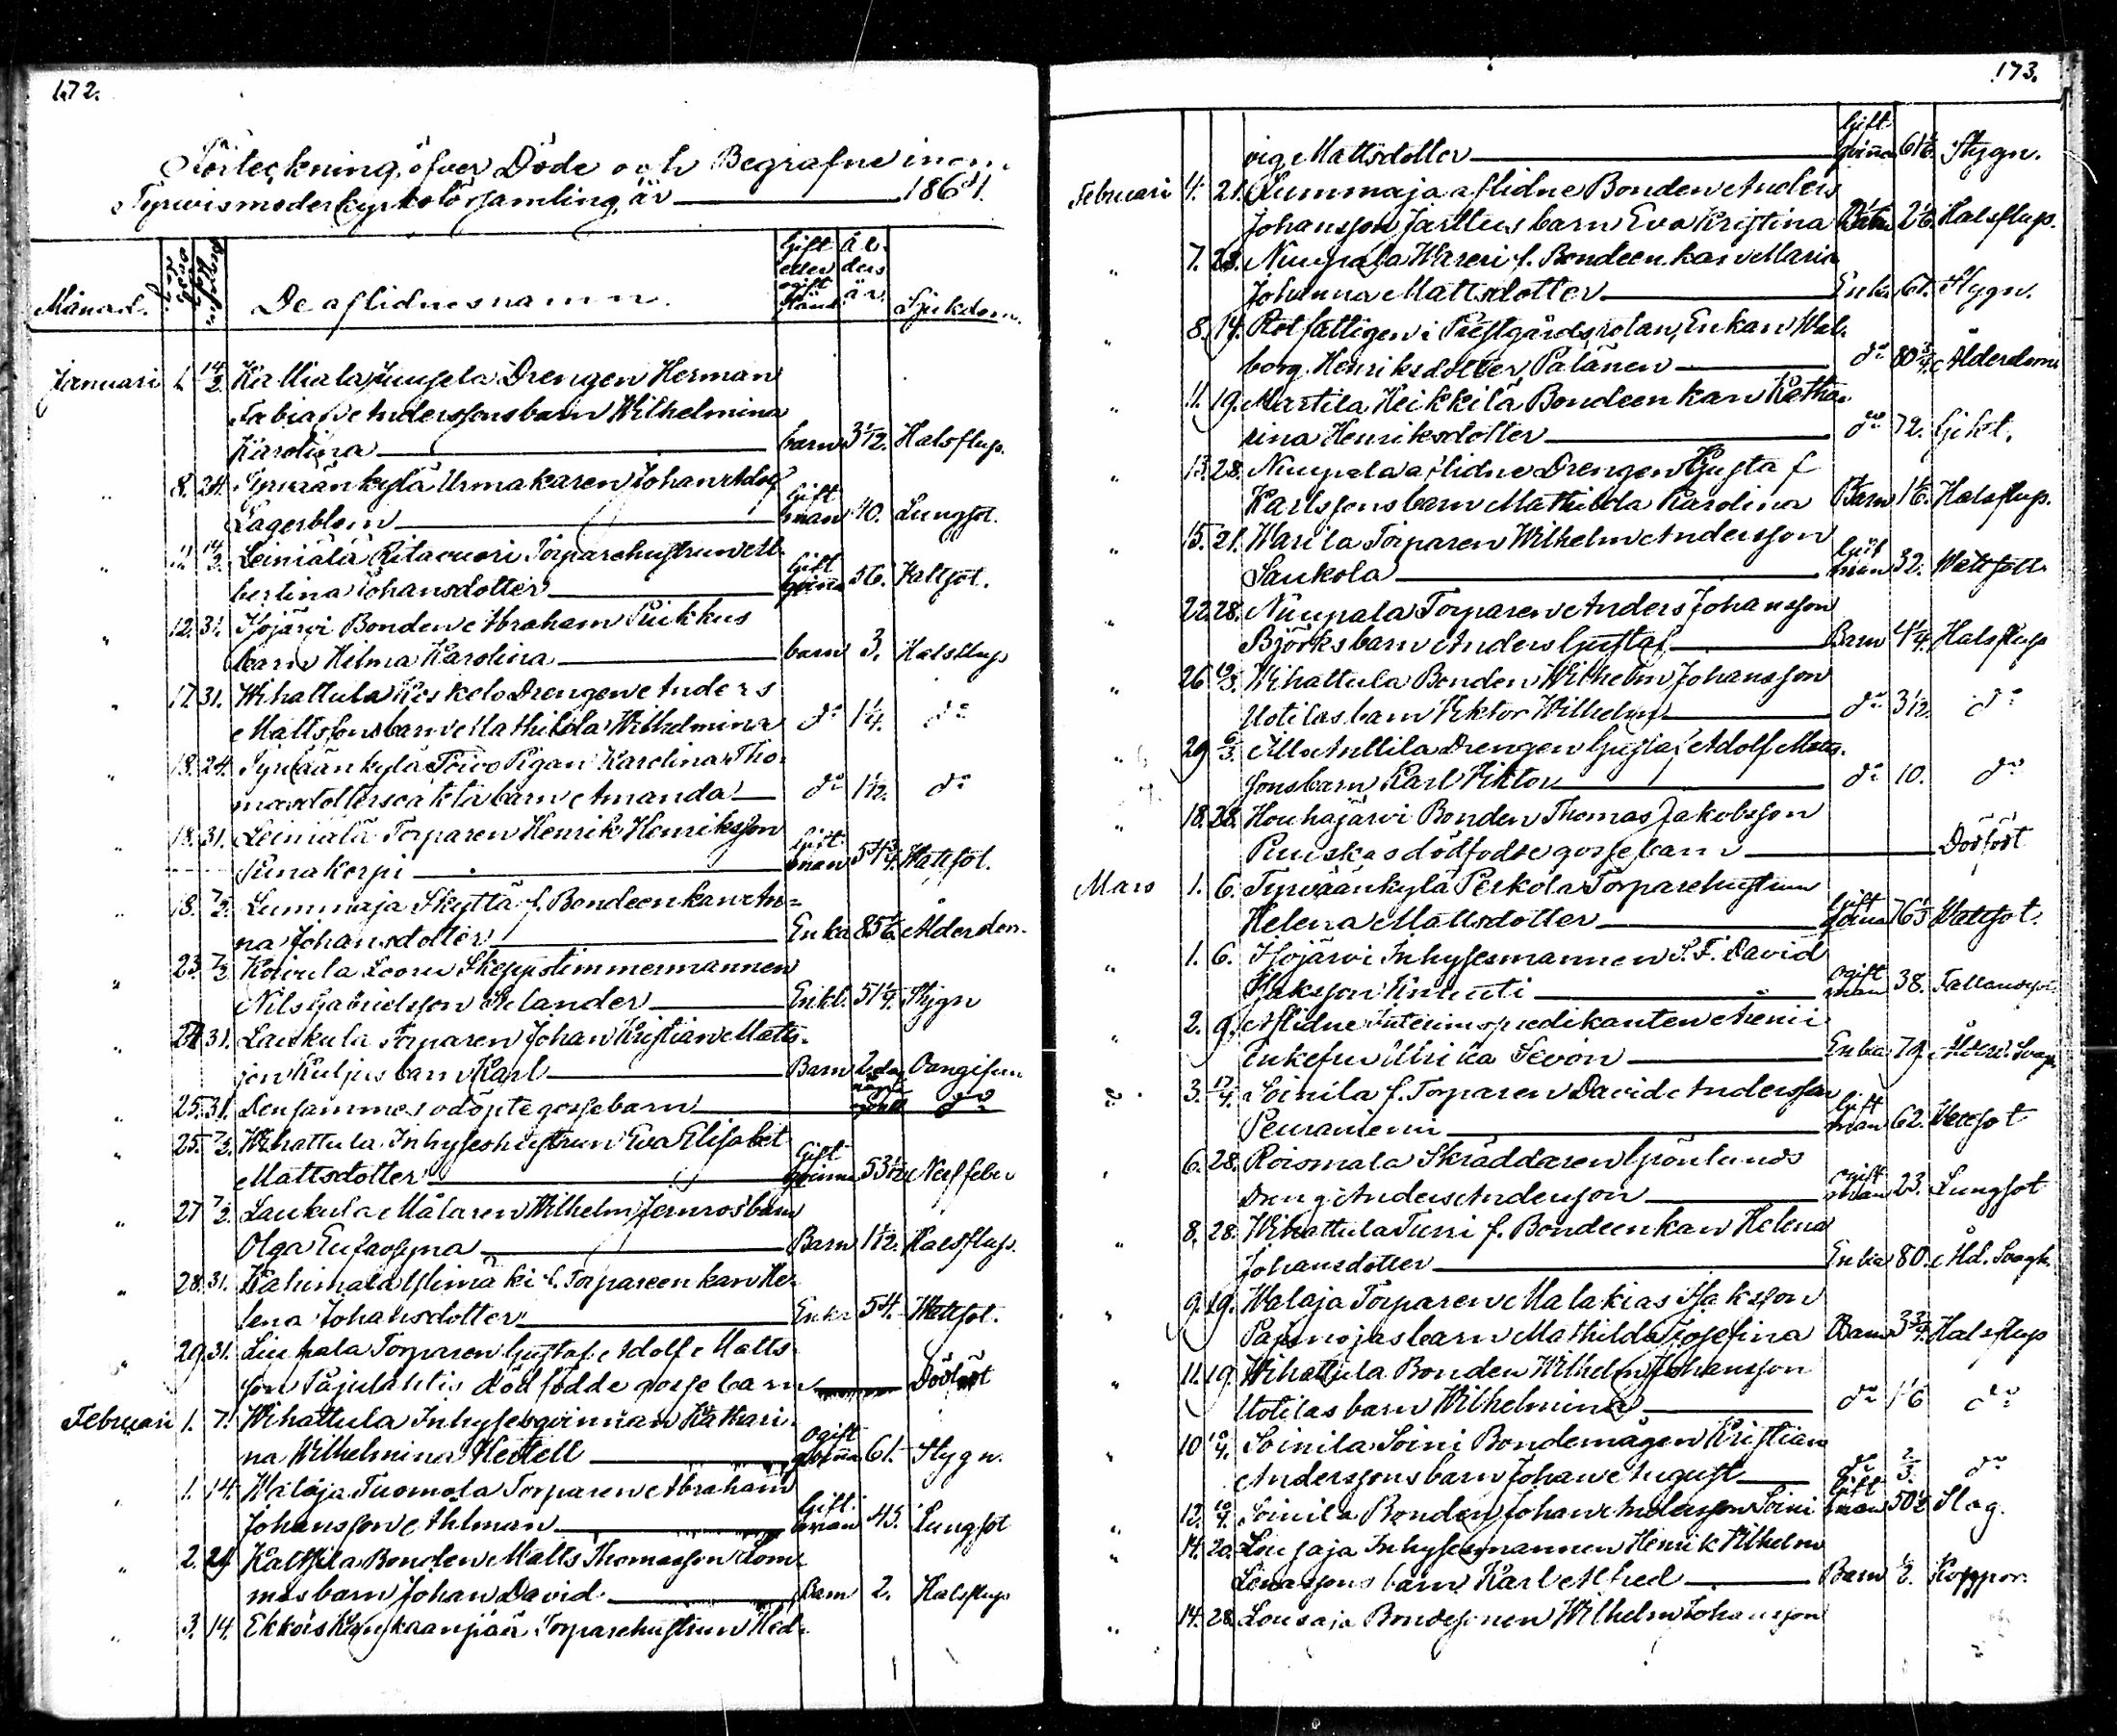 172.
Förteckning öfver Döde och Begrafne inom
Tyrvis moderkyrkoförsamling, år 1864.
Månad. De aflidnes namn. Gift eller ogift stånd. Ålders år. Sjukdom.
Januari 14/2. Kalliala Juusela Drengen Herman
Fabian Anderssons barn Wilhelmina
Karolina barn 3 1/2. Halsflusp.
" 8. 24. Tyrväänkylä Urmakaren Johan Adolf
Lagerblom Gift man 40. Lungsot.
" 11. 14/2. Leiniälä Ritavuori Torparehustrun Al-
bertina Johansdotter Gift qvinna 56. Vattsot.
" 12. 31. Illojärvi Bonden Abraham Pukkus
barn Hilma Karolina barn 3. Halsflusp
" 17. 31. Wihattula Koskelo Drengen Anders
Mattssons barn Mathilda Wilhelmina do 1/4. do
" 18. 24. Tyrväänkylä Toivo Pigan Karolina Tho-
masdotters oäkta barn Amanda do 1 1/2. do
" 18. 31. Leiniälä Torparen Henrik Henriksson
Sunakorpi Gift man 54 3/4. Wattsot.
" 18. 7/2. Lummaja Skyttä f. Bondeenkan An-
na Johansdotter Enka 85 Ålderdom.
" 23. 7/2 Koivula Skeppstimmermannen
Nils Gabrielsson Selander Enkl. 51 1/4. Stygn
" 24 31. Laukula Torparen Johan Kristian Matts-
son Kuljus barn Karl Barn 2 dag Oangifven
" 25. 31. Densammes odöpte gossebarn do
" 25. 7/2. Wihattula Inhyseshustrun Eva Elisabet
Mattsdotter Gift qvinna 53 1/2 Nerffeber
" 27 7/2. Laukula Målaren Wilhelm Jernros barn
Olga Eufrosyna Barn 1 1/2. Halsflusp.
" 28. 31. Kahimala Ylimäki f. Torpareenkan He-
lena Johansdotter Enka 54. Wattsot.
" 29. 31. Liuhala Torparen Gustaf Adolf Matts-
son Pajulahtis dödfödde gossebarn Dödfödt
Februari 1. 7. Wihattula Inhysesqvinnan Kathari-
na Wilhelmina Hertell Ogift qvinna 61. Stygn.
" 1. 14. Wataja Tuomola Torparen Abraham
Johansson Ahlman Gift man 45. Lungsot
" 2. 29 Kaltsila Bonden Matts Thomasson Tom-
mos barn Johan David Barn 2. Halsflusp
" 3. 14. Ekkois Torparehustrun Hed-
173.
vig Mattsdotter Gift qvinna 61 Stygn.
Februari 4. 21. Lummaja aflidne Bonden Anders
Johansson Jarttus barn Eva Kristina Barn 2 Halsflusp.
" 7. 28. Nuupala Wareri f. Bondeenkan Maria
Johanna Mattsdotter Enka 67. Stygn.
" 8. 14. Rotfattigen i Prestgårds rotan, Enkan Wal-
borg Henriksdotter Palänen do 80 3/4 Ålderdom
" 11. 19. Martila Heikkilä Bondeenkan Katha-
rina Henriksdotter do 72. Gikt.
" 13. 28. Nuupala aflidne Drengen Gustaf
Karlssons barn Mathilda Karolina Barn 1 Halsflusp.
" 15. 21. Warila Torparen Wilhelm Andersson
Saukola Gift man 32. Wattsot
" 22. 28. Nuupala Torparen Anders Johansson
Björks barn Anders Gustaf Barn 4 1/4. Halsflusp
" 26 Wihattula Bonden Wilhelm Johansson
Uotilas barn Viktor Wilhelm do 3 1/2. do
" 29 6/3. Illo Anttila Drengen Gustaf Adolf Matts-
sons barn Karl Viktor do 10. do
" 18. 28. Houhajärvi Bonden Thomas Jakobsson
Puuskas dödfödde gossebarn Dödfödt
Mars 1. 6. Tyrväänkylä Perkola Torparehustrun
Helena Mattsdotter Gift qvinna 76 Wattsot.
" 1. 6. Illojärvi Inhysesmannen S. F. David
Isaksson Ogift man 38. Fallandesot
" 2. 9. Aflidne Interimspredikanten
Enkefru Ulrika Sevon Enka 79. Ålderd. Svagh
" 3. 17/4. Soinila f. Torparen David Andersson
Peuraniemi Gift man 62. Wattsot
" 6. 28. Roismala Skräddaren Grönlunds
Dreng Anders Andersson Ogift man 23. Lungsot
" 8. 28. Wihattula Turri f. Bondeenkan Helena
Johansdotter Enka 80. Åld. Svagh.
" 9. 19. Walaja Torparen Malakias Isaksson
Pajunojas barn Mathilda Josefina Barn 3 3/4. Halsflusp
" 11. 19. Wihattula Bonden Wilhelm Johansson
Uotilas barn Wilhelmina do 1/6 do
" 10 10/4. Soinila Soini Bondemågen Kristian
Anderssons barn Johan August do 2/3. do
" 12. 10/4. Soinila Bonden Johan Andersson Soini Gift man 50 1/2 Slag.
" 14. 20. Lousaja Inhysesmannen Henrik Wilhelm
barn Karl Alfred Barn Koppor.
" 14. 28. Lousaja Bondesonen Wilhelm Johansson